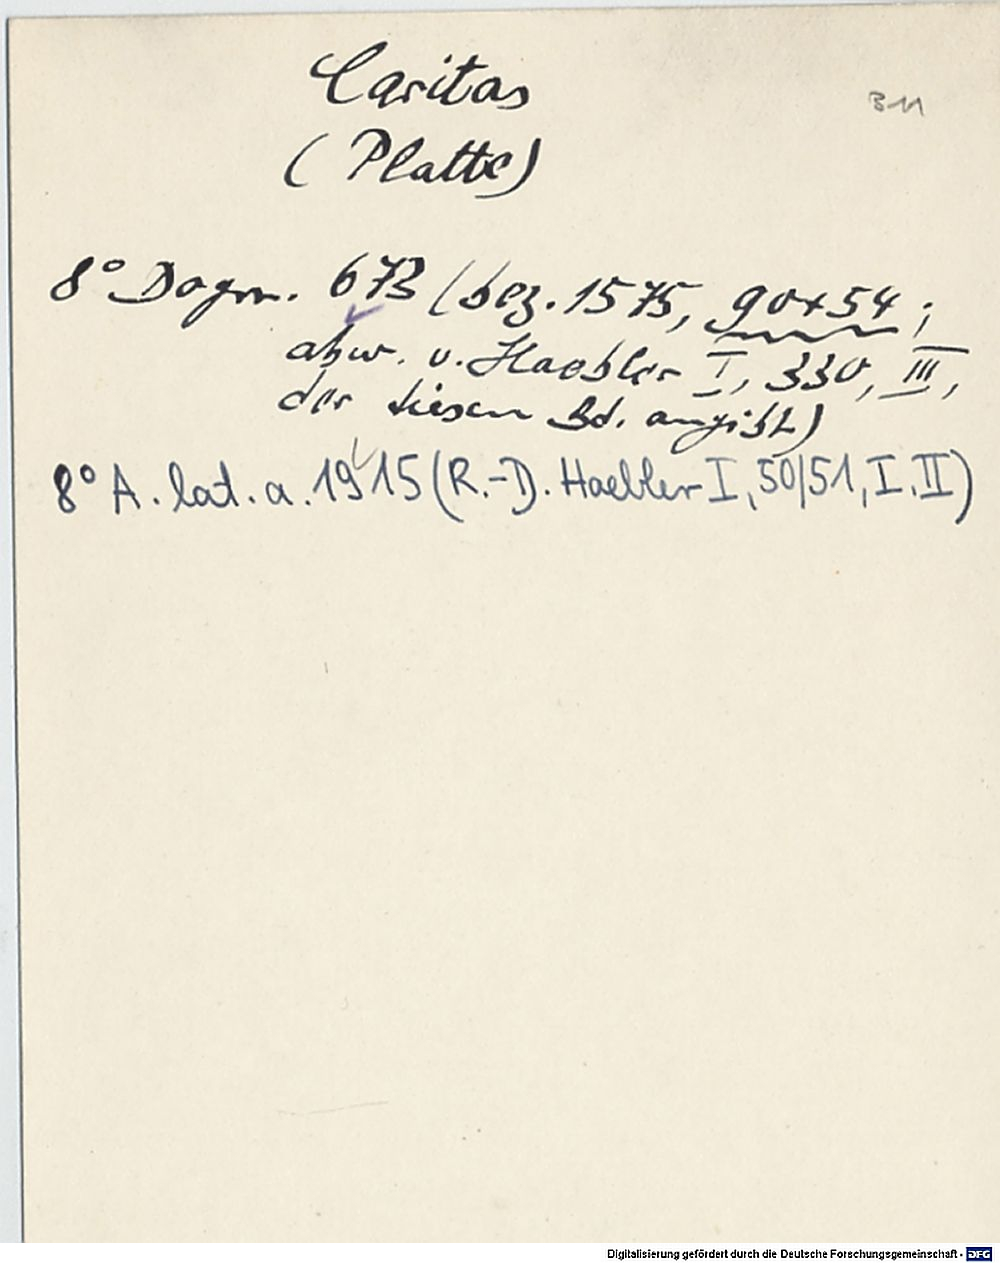 Caritas
B 11
(Platte)
8° Dogm. 673 (bez. 1575, 90x54;
abw. v. Haebler I, 330, III,
der diesen Bd. angibt)
8° A. lat. a. 1915 (R.-D. Haebler I, 50/51, I. II)
Digitalisierung gefördert durch die Deutsche Forschungsgemeinschaft - DFG